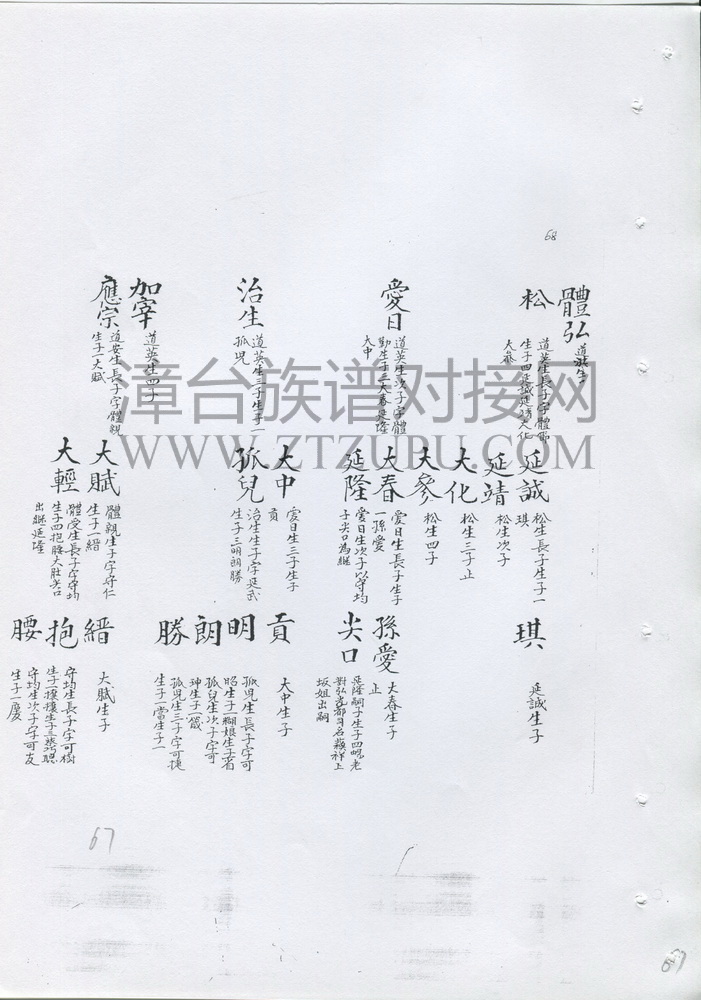 68
體弘
道英生
松
道英生長子字體節
生子四延誠延靖大化
大參
愛日
道英生次子字體
勤生子三大春延隆
大中
治生
道英生三子生子一
孤兒
加宰
道英生四子
應宗
道安生長子字體親
生子一大賦
漳台族谱对接网
WWW.ZTZUPU.COM
延誠
松生長子生子一
琪
延靖
松生次子
大化
松生三子止
大參
松生四子
大春
愛日生長子生子
一孫愛
延隆
愛日生次子以守均
子尖口為繼
大中
愛日生三子生子
貢
孤兒
治生生子字延武
生子三明朗勝
大賦
體親生子字守仁
生子一縉
大輕
體受生長子字守均
生子四抱腰大壯尖口
出継延隆
琪
延誠生子
孫愛
大春生子
止
尖口
延隆嗣子生子四
坂姐出嗣
貢
大中生子
明
孤兒生長子字可
昭生子一糊娘生子省
朗
孤兒生次子字可
珅生子一箴
勝
孤兒生三子字可捷
生子一當生子一
縉
大賦生子
抱
守均生長子字可樹
腰
守均生次子字可友
生子一慶
67
67